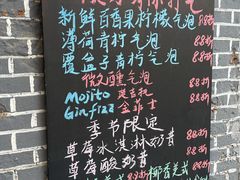 新鲜百香果柠檬气泡 8.8折
薄荷青柠气泡 8.8折
覆盆子青柠气泡 8.8折
微醺气泡 8.8折
Mojito 莫吉托 8.8折
Gin fizz 金菲士 8.8折
季节限定
草莓冰淇淋奶昔 8.8折
草莓酸奶昔 8.8折